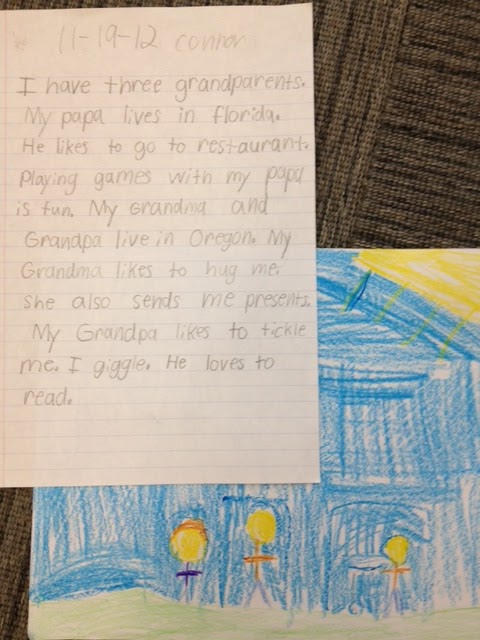 11-19-12 connor
I have three grandparents.
My papa lives in florida.
He likes to go to restaurant.
Playing games with my papa
is fun. My Grandma and
Grandpa live in Oregon. My
Grandma likes to hug me.
she also sends me presents.
My Grandpa likes to tickle
me. I giggle. He loves to
read.